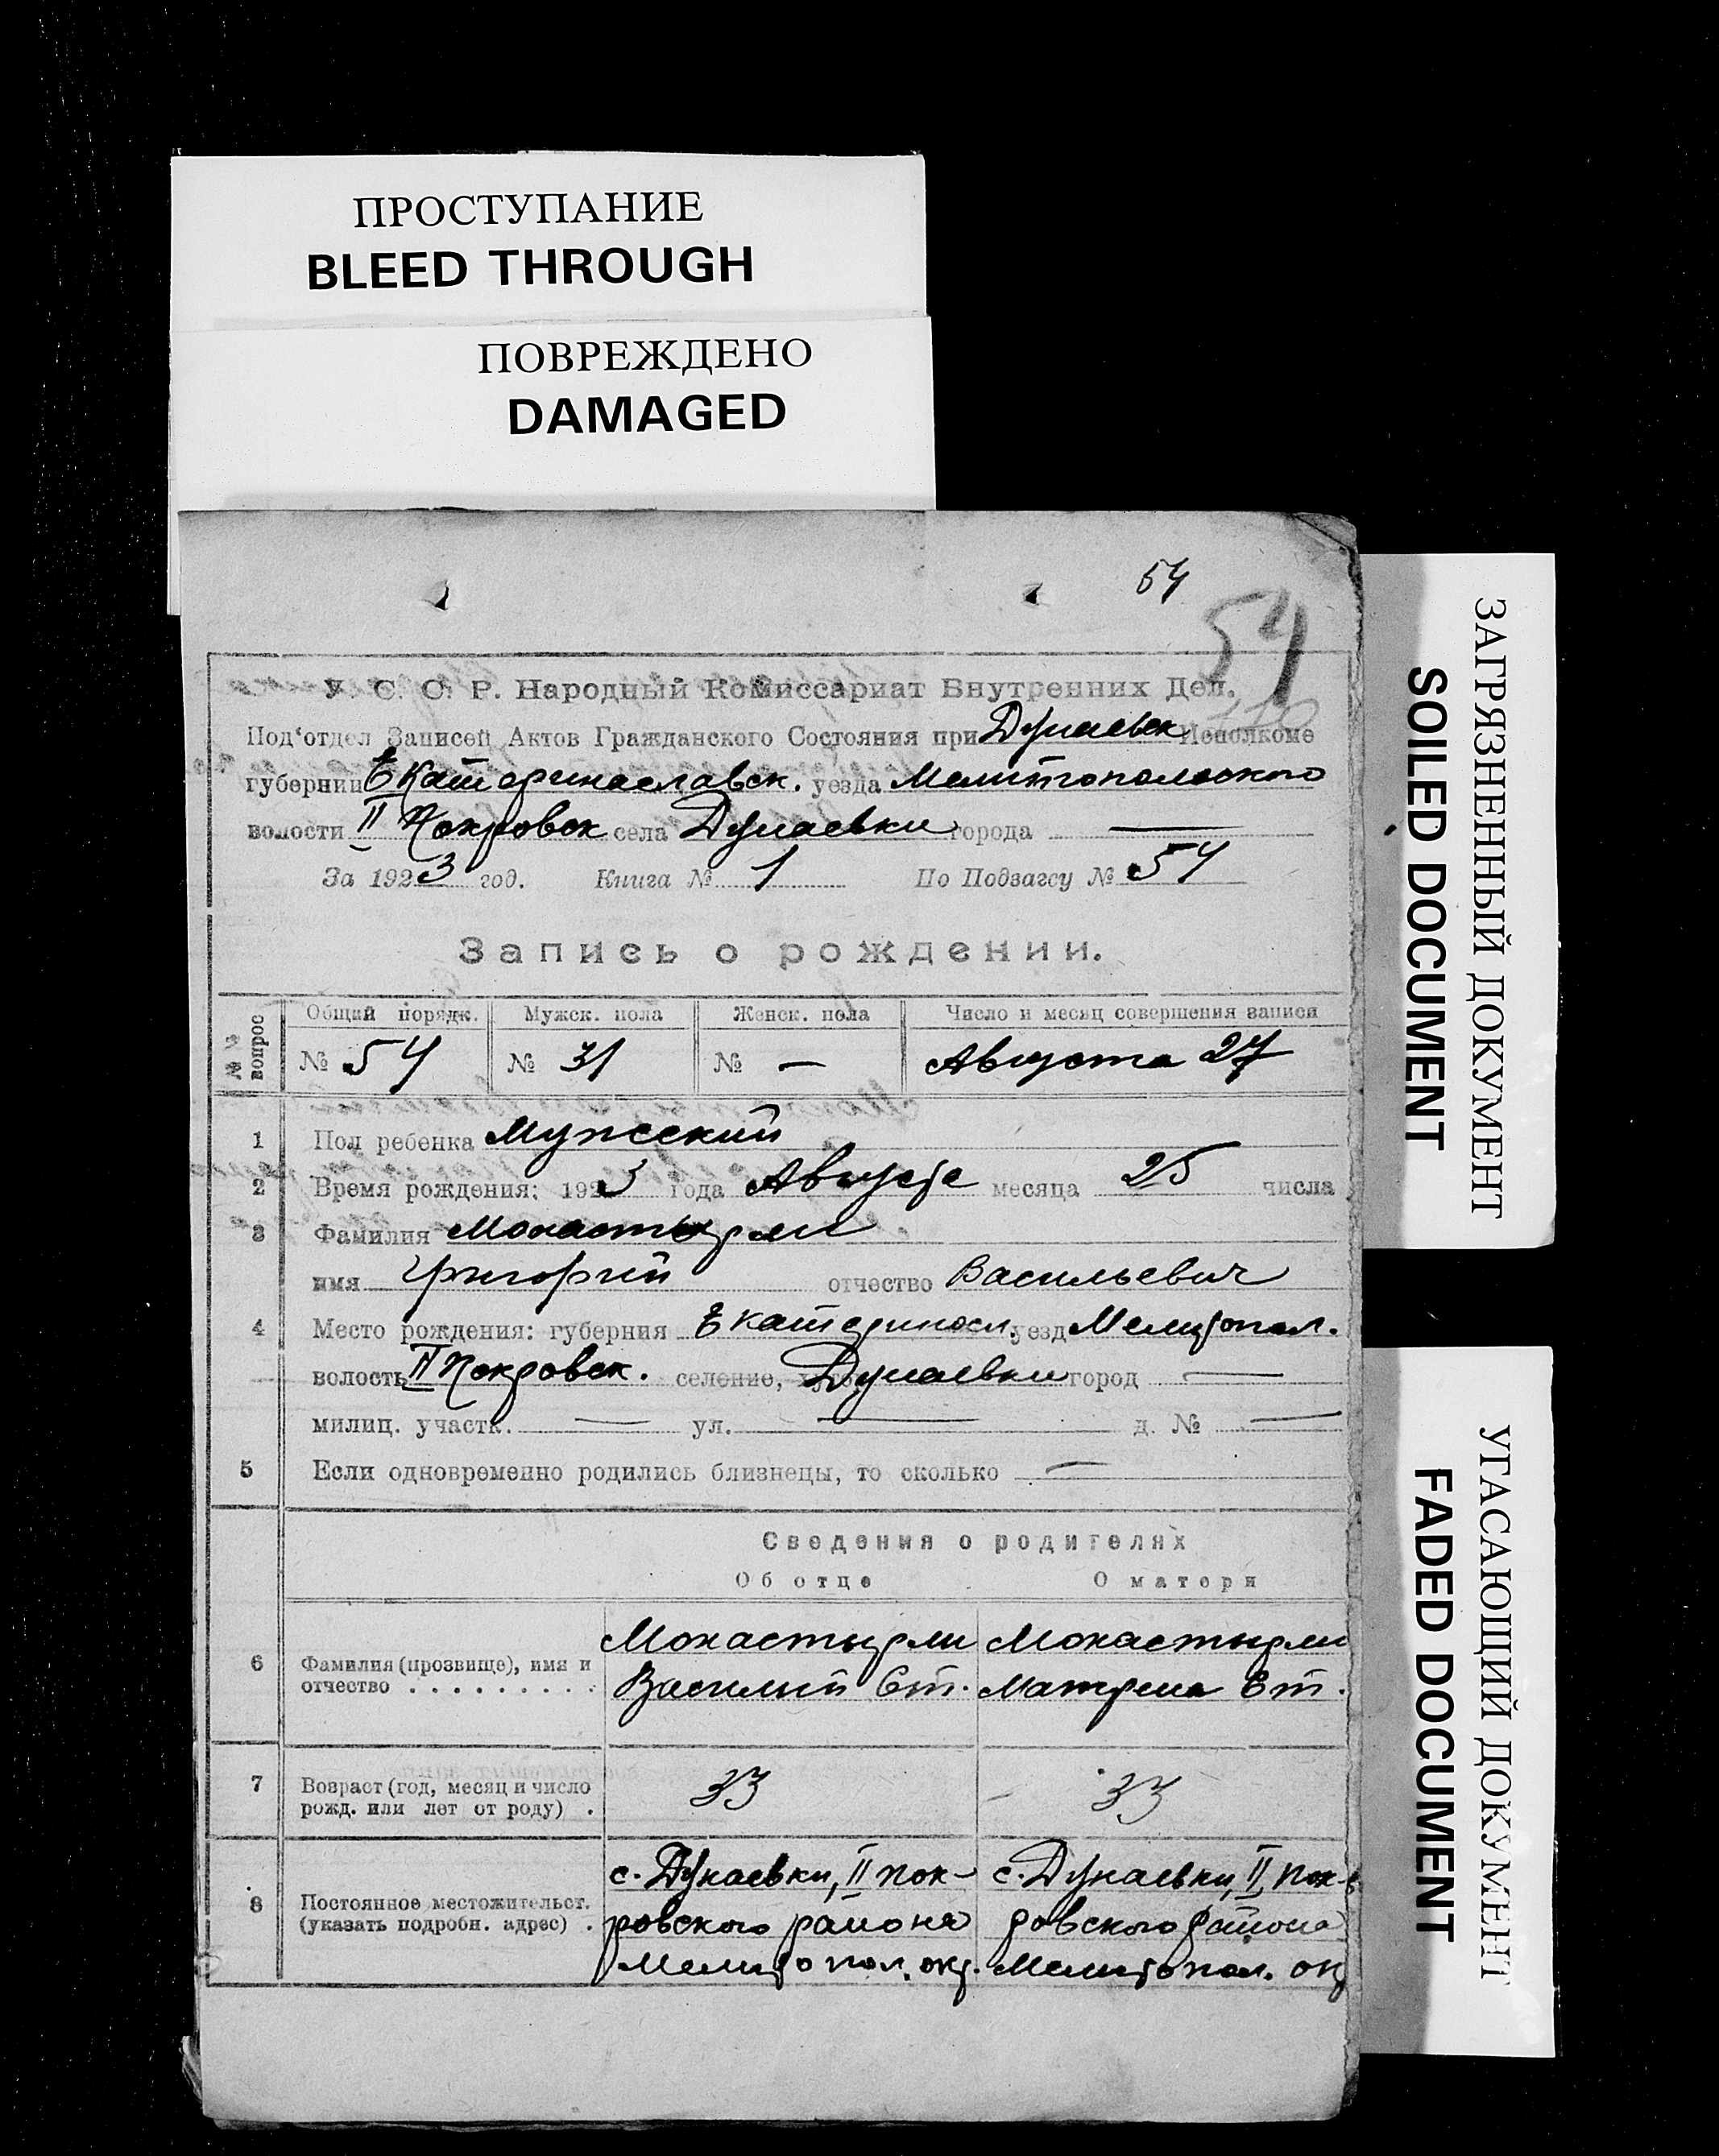 ПРОСТУПАНИЕ
BLEED THROUGH
ПОВРЕЖДЕНО
DAMAGED
54
54
110
У. С. С. Р. Народный Комиссариат Внутренних Дел.
Под‘отдел Записей Актов Гражданского Состояния при Дунаевск Исполкоме
губернии Екатеринославск. уезда Мелитопольского
волости II Покровск села Дунаевки города —
За 1923 год. Книга № 1 По Подзагсу № 54
Запись о рождении.
№№ вопрос Общий порядк. Мужск. пола Женск. пола Число и месяц совершения записи
№ 54 № 31 № — Августа 27
1 Пол ребенка Мужеский
2 Время рождения: 1923 года Августа месяца 25 числа
3 Фамилия Монастырли
имя Григорий отчество Васильевич
4 Место рождения: губерния Екатериносл. уезд Мелитопол.
волость II Покровск. селение, Дунаевки город —
милиц. участк. — ул. — д. № —
5 Если одновременно родились близнецы, то сколько —
Сведения о родителях
Об отце О матери
Монастырли Монастырли
6 Фамилия (прозвище), имя и
отчество . . . . . . . . . Василий Ст. Матрена Ст.
7 Возраст (год, месяц и число
рожд. или лет от роду) . 33 33
с. Дунаевки, II Пок- с. Дунаевки, II Пок-
8 Постоянное местожительст.
(указать подробн. адрес) . ровского района ровского района
Мелитопол. окр. Мелитопол. окр
ЗАГРЯЗНЕННЫЙ ДОКУМЕНТ
SOILED DOCUMENT
УГАСАЮЩИЙ ДОКУМЕНТ
FADED DOCUMENT